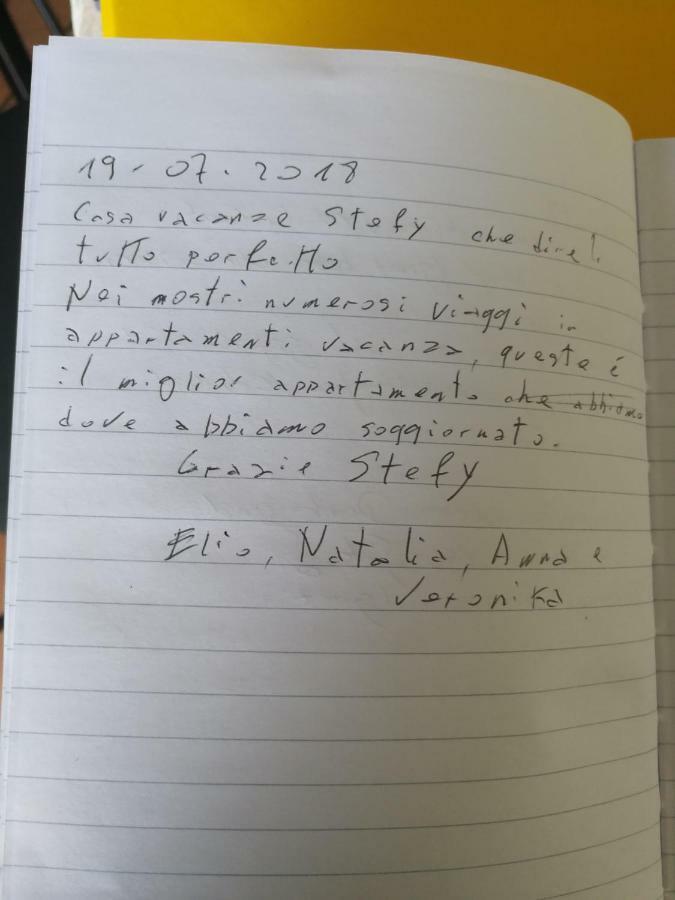 19.07.2018
Casa vacanze Stefy che dire!
tutto perfetto
Nei nostri numerosi viaggi in
appartamenti vacanza, questo è
il miglior appartamento che abbiamo
dove abbiamo soggiornato.
Grazie Stefy
Elio, Natalia, Anna e
Veronika